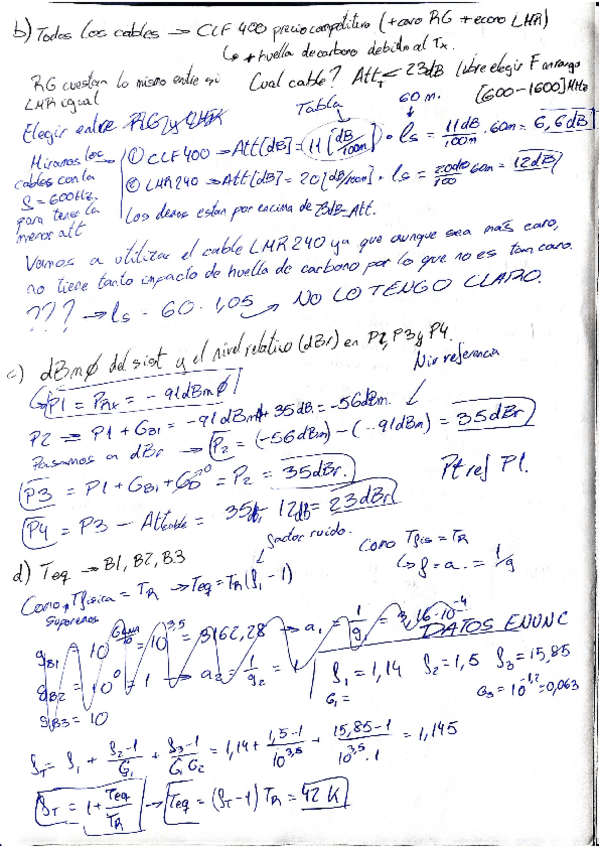 b) Todos los cables → CLF 400 precio competitivo (+caro RG +econo LMR)
↳ + huella de carbono debido al Tx.
RG cuestan lo mismo entre si
LMR igual
Cual cable? Att_T < 23dB libre elegir F en rango
[600-1600] MHz
Elegir entre
Tabla
60 m.
Miramos los cables con la f = 600Hz para tener la menor att
① CLF400 → Att[dB] = 11 [dB/100m] · ls = 11dB/100m · 60m = 6,6dB
② LMR240 → Att[dB] = 20[dB/100m] · ls = 20dB/100 60m = 12dB
Los demos estan por encima de 23dB=Att.
Vamos a utilizar el cable LMR 240 ya que aunque sea más caro,
no tiene tanto impacto de huella de carbono por lo que no es tan caro.
??? → ls = 60 · 1,05 → NO LO TENGO CLARO.
c) dBmØ del sist y el nivel relativo (dBr) en P2, P3 y P4.
Niv referencia
↳ P1 = PRx = -91dBmØ
P2 → P1 + GB1 = -91dBm + 35dB = -56dBm.
Pasamos a dBr → P2 = (-56dBm) - (-91dBm) = 35dBr
P3 = P1 + GB1 + = P2 = 35dBr.
Pt ref P1.
P4 = P3 - Attcable = 35 - 12dB = 23dBr
d) Teq → B1, B2, B3
factor ruido.
Como Tfis = TR
↳ f = a = 1/g
Como Tfisica = TR → Teq = TR(f1 - 1)
Suponemos
gB1 = 10 = 10^3,5 = 3162,28 → a1 = 1/g1 = 3,16·10^-4
DATOS ENUNC
gB2 = 10^0 = 1 → a2 = 1/g2 = 1
f1 = 1,14 f2 = 1,5 f3 = 15,85
G1 =
G3 = 10^-1,2 = 0,063
gB3 = 10
fT = f1 + f2-1/G1 + f3-1/G1 G2 = 1,14 + 1,5-1/10^3,5 + 15,85-1/10^3,5 · 1 = 1,145
fT = 1 + Teq/TR → Teq = (fT - 1) TR = 42 K